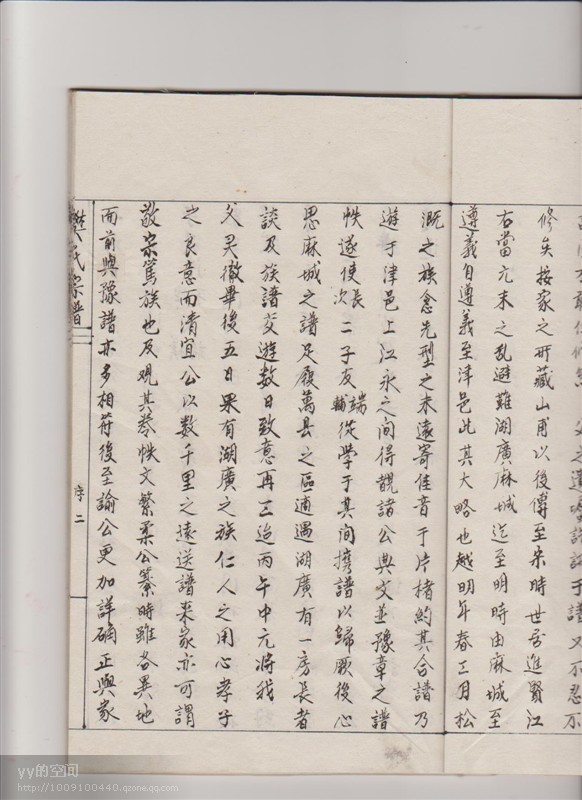 修矣按家之所藏山甫以後傳至宋時世居進賢江
右當元末之亂避難湖廣麻城迄至明時由麻城至
遵義自遵義至津邑此其大略也越明年春三月松
溉之族念先型之未遠寄佳音于片楮約其合譜乃
遊于津邑上江永之間得覩諸公與文並豫章之譜
帙遂使長次二子友端輔從學于其間携譜以歸厥後心
思麻城之譜足履萬县之區適遇湖廣有一房長者
談及族譜交遊数日致意再三迨丙午中元将我
父灵徹畢後五日果有湖廣之族仁人之用心孝子
之良意而清宜公以数千里之遠送譜来家亦可謂
敬宗篤族也及观其卷帙文繁柔公纂時雖各異地
而前與豫譜亦多相符後至諭公更加詳确正與家
氏宗譜
序二
yy的空间
http://1009100440.qzone.qq.com/